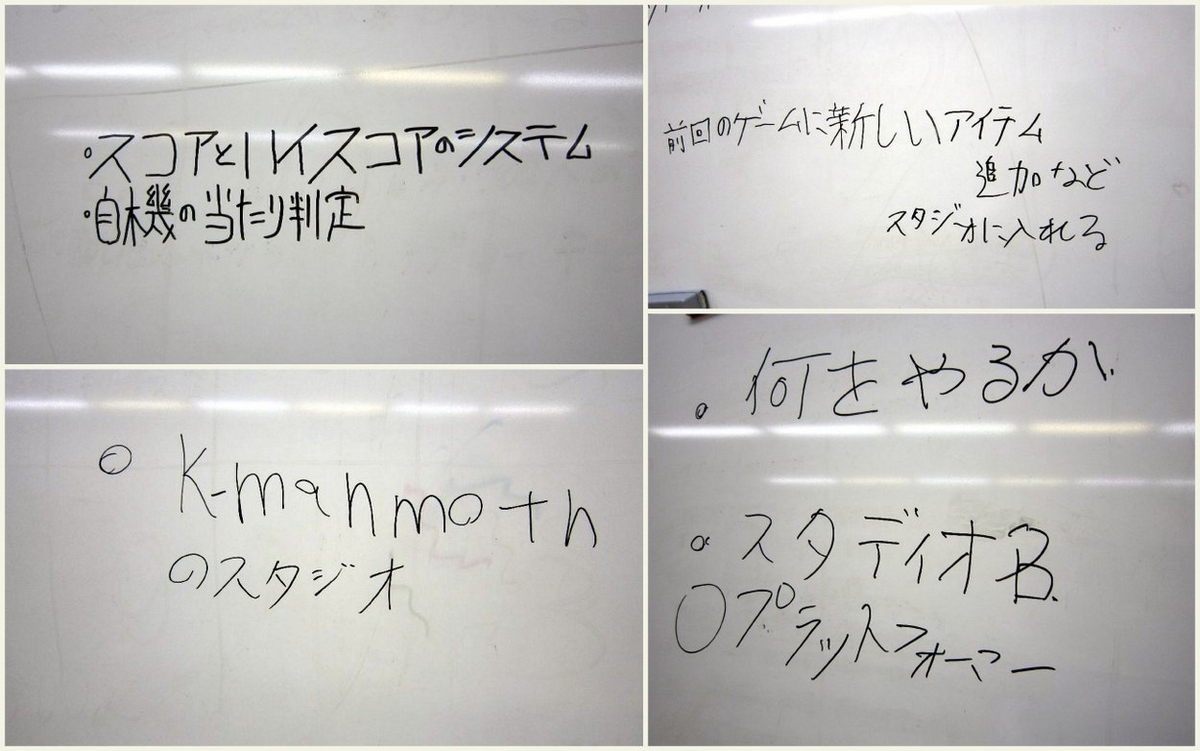 ・スコアとハイスコアのシステム
・自機の当たり判定
前回のゲームに新しいアイテム
追加など
スタジオに入れる
○ K-manmoth
のスタジオ
。何をやるか。
。スタディオB.
○プラットフォーマー